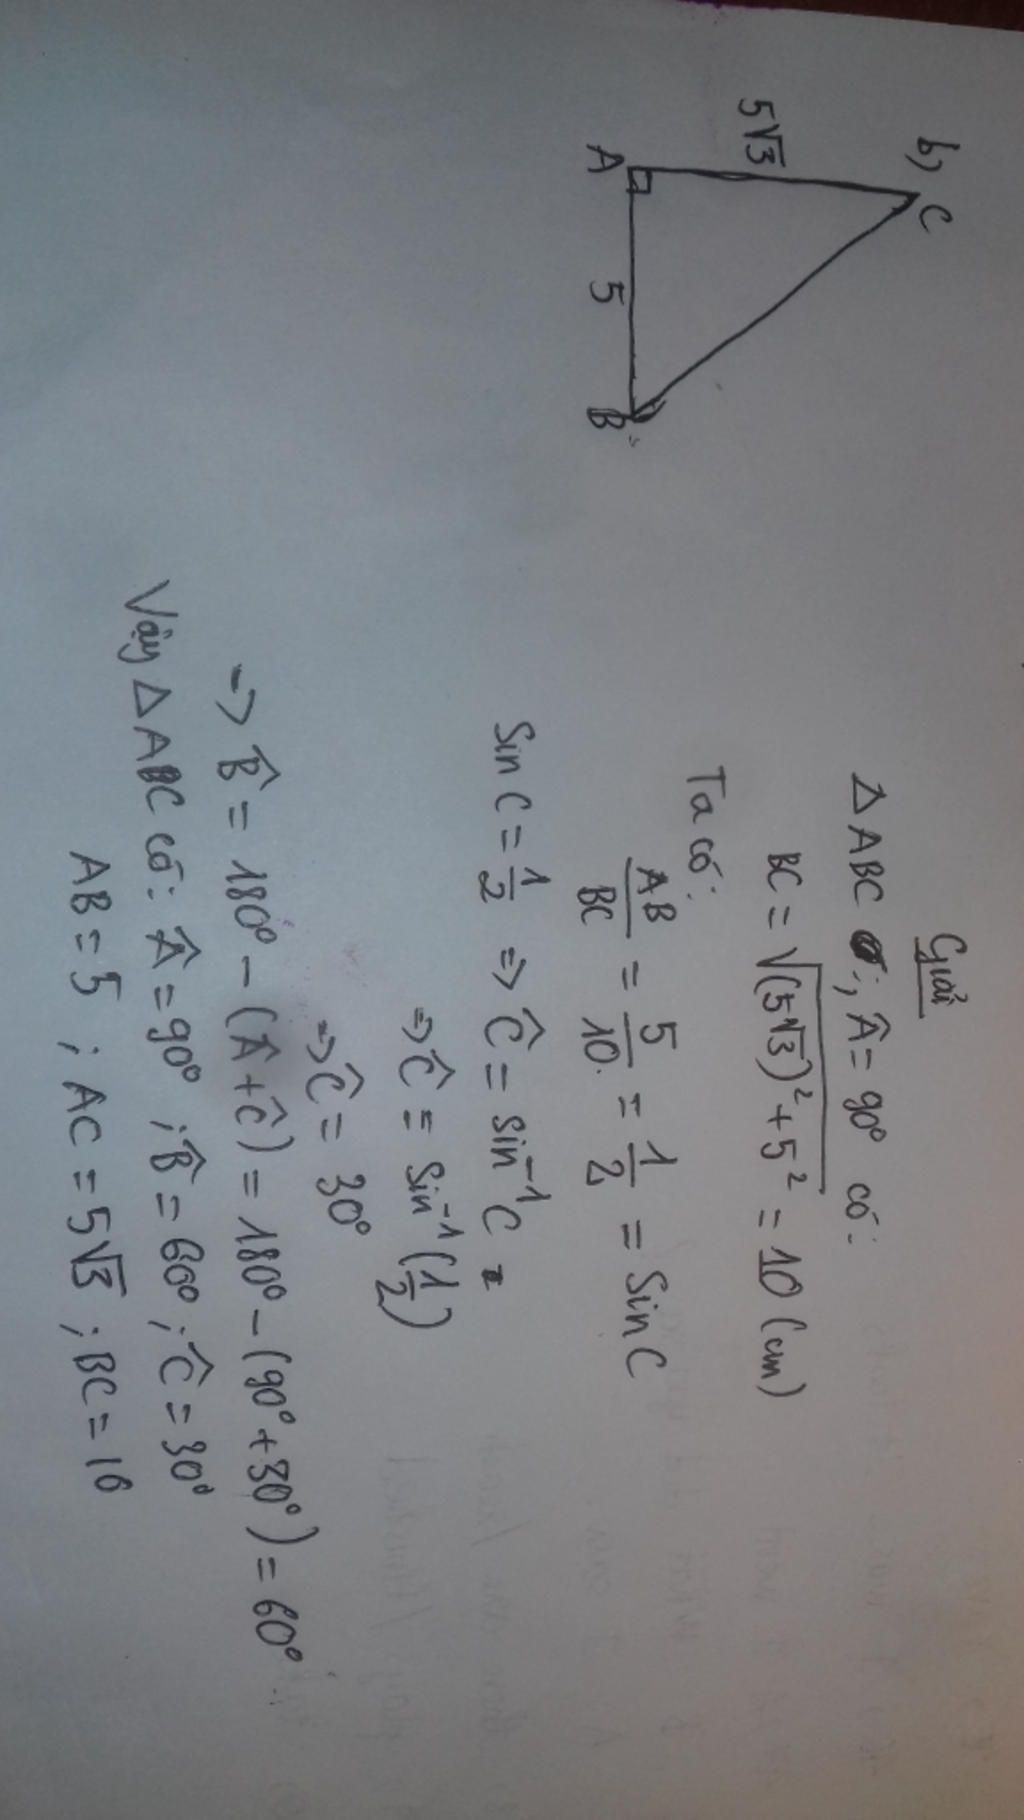 b)
C
5√3
A
5
B
Giải
△ABC ; Â = 90° có:
BC = √(5√3)² + 5² = 10 (cm)
Ta có:
AB/BC = 5/10 = 1/2 = Sin C
Sin C = 1/2 => Ĉ = Sin⁻¹ C =
=> Ĉ = Sin⁻¹ (1/2)
=> Ĉ = 30°
-> B̂ = 180° - (Â + Ĉ) = 180° - (90° + 30°) = 60°
Vậy △ABC có: Â = 90° ; B̂ = 60° ; Ĉ = 30°
AB = 5 ; AC = 5√3 ; BC = 10